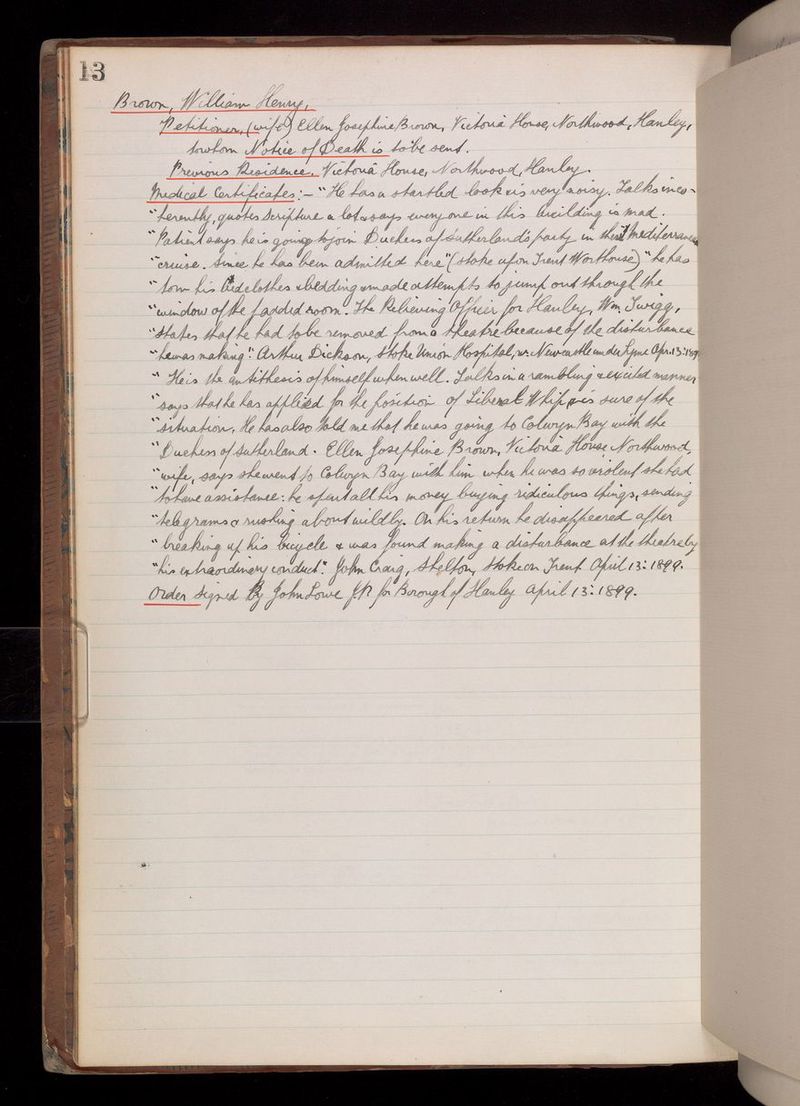 13
Brown, William Henry,
Petitioner, (wife) Ellen Josephine Brown, Victoria House, Northwood, Hanley,
to whom Notice of Death is to be sent.
Previous Residence. Victoria House, Northwood, Hanley.
Medical Certificates:- "He has a startled look & is very noisy. Talks inco-
"herently, quotes Scripture a lot & says every one in this building is mad.
"Patient says he is going to join Duchess of Sutherland's party in their Mediterranean
"cruise. Since he has been admitted here" (Stoke upon Trent Workhouse) "he has
"torn his bedclothes & bedding & made attempts to jump out through the
"window of the padded room. The Relieving Officer for Hanley, Wm. Twigg,
"states that he had to be removed from a theatre because of the disturbance
"he was making". Arthur Dickson, Stoke Union Hospital, nr. Newcastle under Lyme April 13: 1899
"He is the antithesis of himself when well. Talks in a rambling & excited manner
"says that he has applied for the position of Liberal Whip & is sure of the
"situation. He has also told me that he was going to Colwyn Bay with the
"Duchess of Sutherland. Ellen Josephine Brown, Victoria House Northwood,
"wife, says she went to Colwyn Bay with him when he was so violent she had
"to have assistance: he spent all his money buying ridiculous things, sending
"telegrams & rushing about wildly. On his return he disappeared after
"breaking up his bicycle & was found making a disturbance at the theatre by
"his extraordinary conduct". John Craig, Shelton, Stoke on Trent April 13: 1899.
Order signed By John Lowe J.P. for Borough of Hanley April 13: 1899.